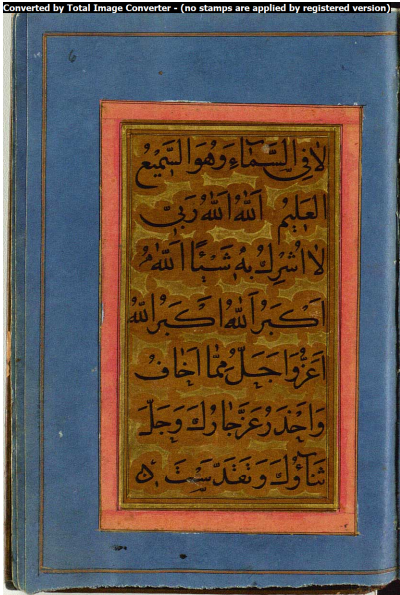 Converted by Total Image Converter - (no stamps are applied by registered version)
6
لَا فِي السَّمَاءِ وَهُوَ السَّمِيعُ
الْعَلِيمُ اَللهُ اَللهُ رَبِّي
لَا اُشْرِكُ بِهِ شَيْئًا اَللهُ
اَكْبَرُ اَللهُ اَكْبَرُ اَللهُ
اَعَزُّ وَاَجَلُّ مِمَّا اَخَافُ
وَاَحْذَرُ عَزَّ جَارُكَ وَجَلَّ
ثَنَاؤُكَ وَتَقَدَّسَتْ